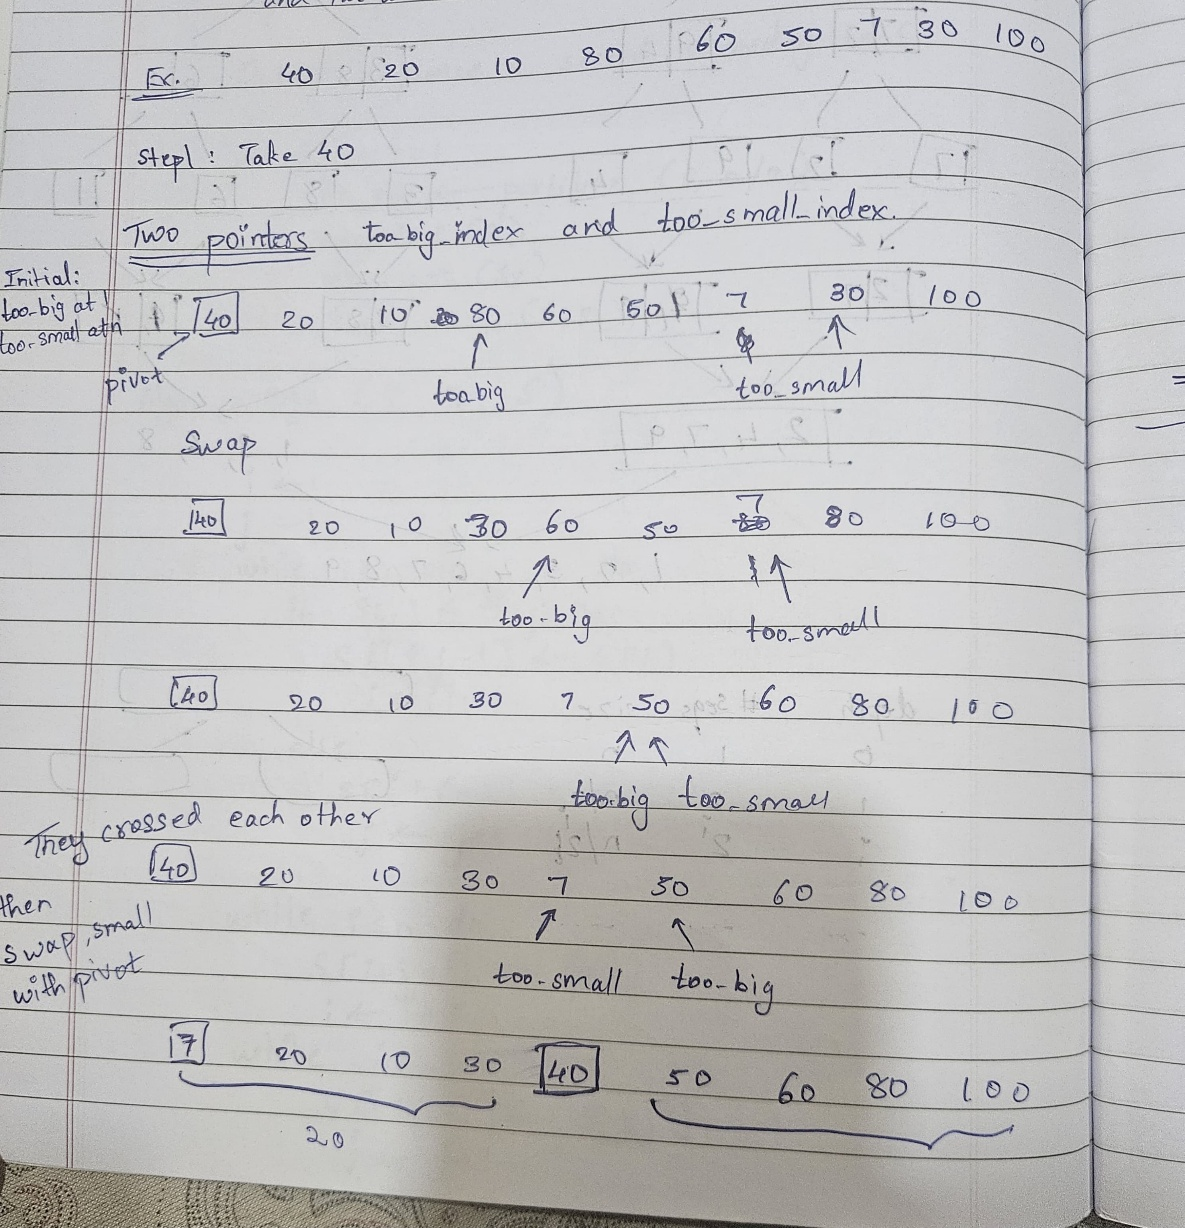 Ex. 40 20 10 80 60 50 7 30 100
Step1: Take 40
Two pointers: too big_index and too_small_index.
Initial:
too-big at 1
too-small at n
40 20 10 80 60 50 7 30 100
pivot
too big
too_small
Swap
40 20 10 30 60 50 7 80 100
too-big
too-small
40 20 10 30 7 50 60 80 100
too-big too-small
They crossed each other
40 20 10 30 7 50 60 80 100
then
swap, small
with pivot
too-small too-big
7 20 10 30 40 50 60 80 100
20